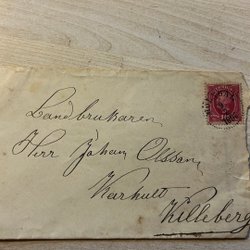 Landbrukaren
Herr Johan Olsson
Karhult
Killeberg